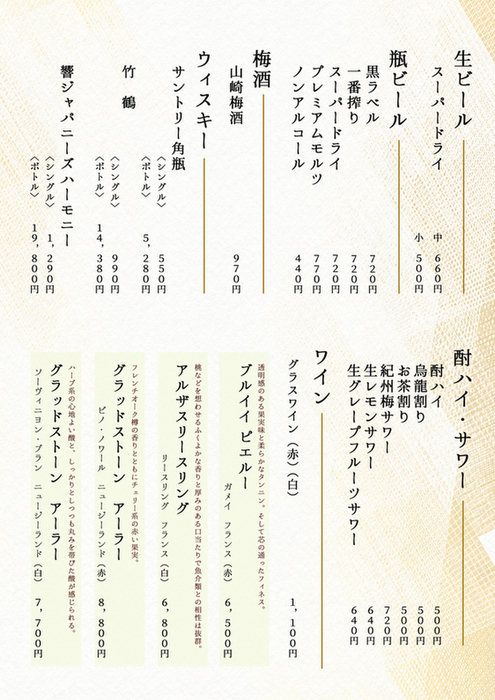 生ビール
スーパードライ
中 660円
小 500円
瓶ビール
黒ラベル 720円
一番搾り 720円
スーパードライ 720円
プレミアムモルツ 770円
ノンアルコール 440円
梅酒
山崎梅酒 970円
ウィスキー
サントリー角瓶
〈シングル〉 550円
〈ボトル〉 5,280円
竹鶴
〈シングル〉 990円
〈ボトル〉 14,380円
響ジャパニーズハーモニー
〈シングル〉 1,290円
〈ボトル〉 19,800円
酎ハイ・サワー
酎ハイ 500円
烏龍割り 500円
お茶割り 500円
紀州梅サワー 720円
生レモンサワー 640円
生グレープフルーツサワー 640円
ワイン
グラスワイン（赤）（白） 1,100円
透明感のある果実味と柔らかなタンニン。そして芯の通ったフィネス。
ブルイイ ピエルー
ガメイ フランス（赤） 6,500円
桃などを想わせるふくよかな香りと厚みのある口当たりで魚介類との相性は抜群。
アルザスリースリング
リースリング フランス（白） 6,800円
フレンチオーク樽の香りとともにチェリー系の赤い果実。
グラッドストーン アーラー
ピノ・ノワール ニュージーランド（赤） 8,800円
ハーブ系の心地よい酸と、しっかりとしつつも丸みを帯びた酸が感じられる。
グラッドストーン アーラー
ソーヴィニヨン・ブラン ニュージーランド（白） 7,700円